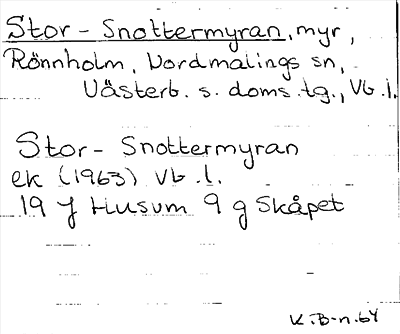 Stor-Snottermyran, myr,
Rönnholm, Nordmalings sn,
Västerb. s. doms.tg., Vb.l.
Stor-Snottermyran
ek (1963) Vb.l.
19 J Husum 9 g Skåpet
K.B-n.64